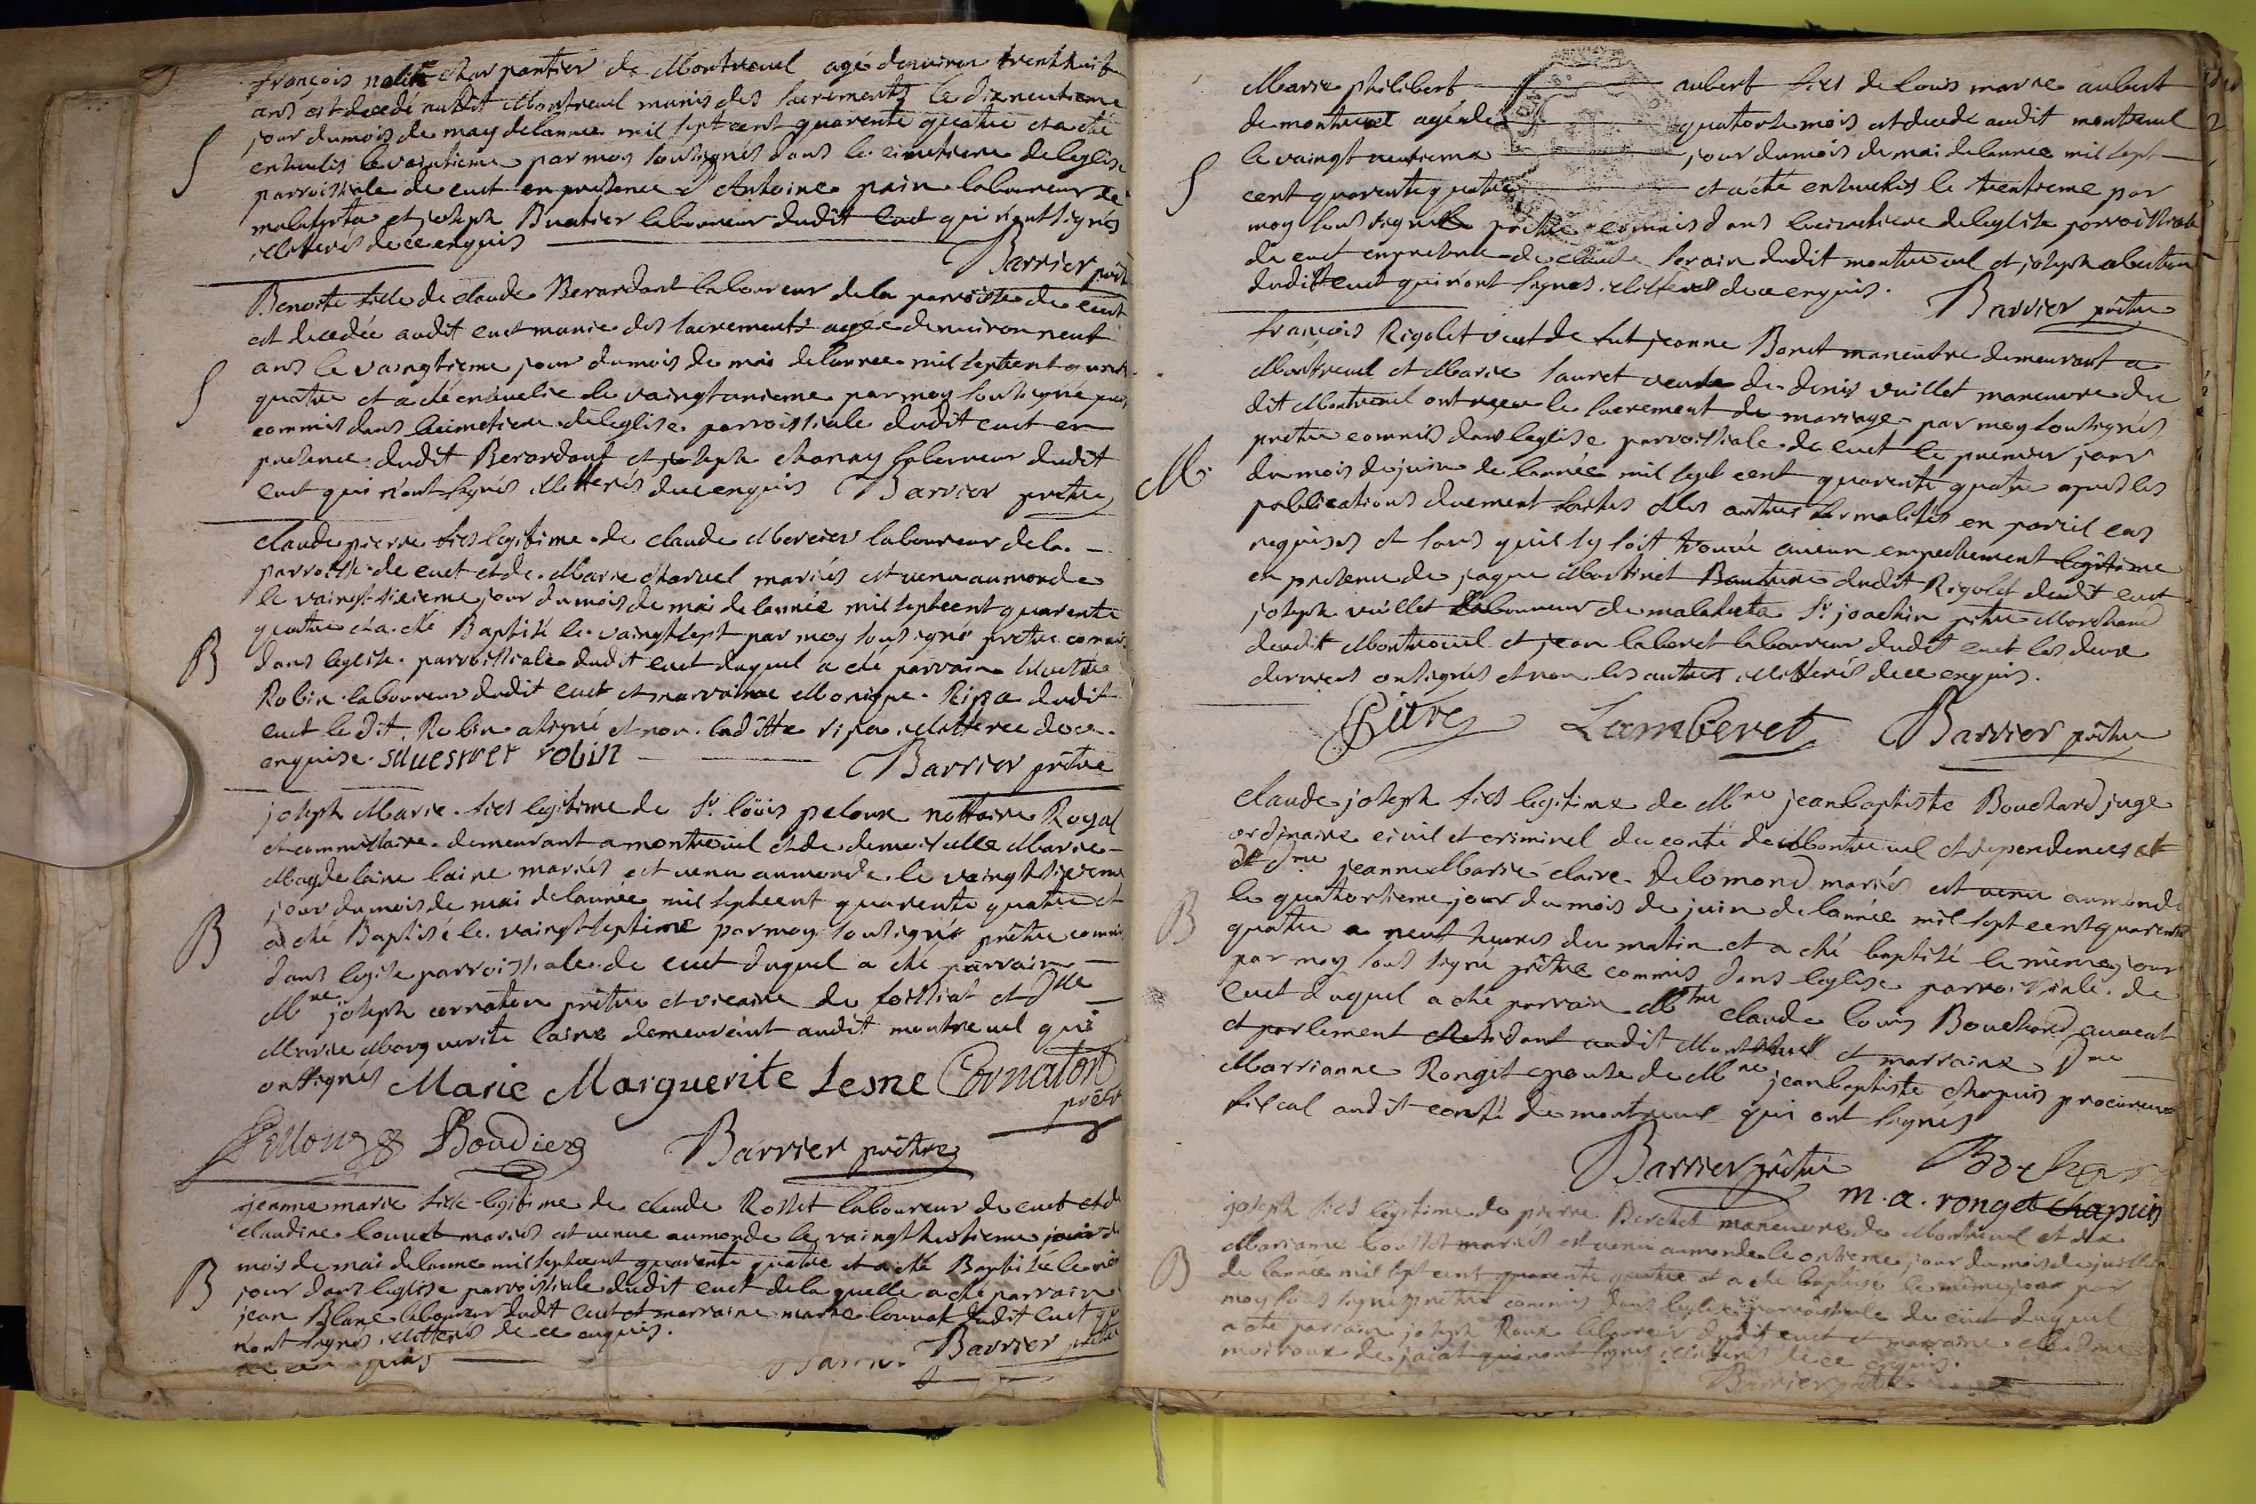 françois charpantier de Montreuel agé denviron trenthuit
ans est decedé audit Montreuel munis des sacrements le dixneuvieme
jour dumois de may delannee mil sept cent quarente quatre et a eté
enseveli le vaintieme par moy soussignés dans le cimetiere de leglise
parroissiale de cuet en presence d'Antoine pain laboureur de
malaferta et joseph Buatier laboureur dudit cuet qui n'ont signés
illiterés de ce enquis
Barrier prêtre
S
Benoite fille de claude Berardant laboureur de la parroisse de cuet
est decedée audit cuet munie des sacrements agée denviron neuf
ans le vaingtieme jour dumois de mai delannee mil septcent quarente
quatre et a eté ensevelie le vaingtunieme par moy soussigné prêtre
commis dans le cimetiere de leglise parroissiale dudit cuet en
presence dudit Berardant et joseph chanay laboureur dudit
cuet qui n'ont signés illitterés de ce enquis Barrier prêtre
S
claude pierre fils legitime de claude Mercier laboureur de la
parroisse de cuet et de Marie charvel mariés est venu au monde
le vaingt sixieme jour dumois de mai de lannée mil septcent quarente
quatre et a eté Baptisé le vaingt sept par moy sous signé prêtre commis
dans leglise parroissiale dudit cuet duquel a eté parrain
Robin laboureur dudit cuet et marraine Monique Ripa dudit
cuet le dit Robin a signé et non laditte ripa illitterée de ce
enquise. silvestrer robin Barrier prêtre
B
joseph Marie fils legitime de Sr. loüis peloux nottaire Royal
et commissaire demeurant a montreuil et de demoiselle Marie
Magdelaine laine mariés est venu au monde le vaingt sixieme
jour dumois de mai delannée mil septcent quarente quatre et
a eté Baptisé le vaingt septieme par moy sousigné prêtre commis
dans leglise parroissiale de cuet duquel a eté parrain
Mre joseph cornaton prêtre et vicaire de foissiat et Dlle
Marie Marguerite laine demeurant audit montreuel qui
ont signés Marie Marguerite Lesne Cornaton
prêtre
Boudier Barrier prêtre
B
jeanne marie fille legitime de claude Rosset laboureur de cuet et de
claudine louvet mariés est venue au monde le vaingt huitieme jour de
mois de mai delannee mil septcent quarente quatre et a eté Baptisée le même
jour dans leglise parroissiale dudit cuet de laquelle a eté parrain
jean Blanc laboureur dudit cuet et marraine marie louvat dudit cuet qui
n'ont signés illitterés de ce enquis.
Barrier prêtre
B
Marie philibert aubert fils de louis marie aubert
de montreuel agé de quatorse mois est decedé audit montreuel
le vaingt neuvieme jour dumois de mai delannee mil sept
cent quarente quatre et a eté ensevelis le trentieme par
moy sous signé prêtre commis dans le cimetiere de leglise parroissiale
de cuet en presence de claude dudit montreuel et joseph
dudit cuet qui n'ont signés illitterés de ce enquis.
Barrier prêtre
S
françois Rigolet veuf de fut jeanne Boret maneuvre demeurant a
Montreuel et Marie lauret veuve de denis vuillet maneuvre du
dit Montreuil ont reçu le sacrement de mariage par moy soussignés
prêtre commis dans leglise parroissiale de cuet le premier jour
dumois de juin de lannée mil sept cent quarente quatre apres les
publications duement faites et les autres formalités en pareil cas
requises et sans quil sy soit trouvé aucun empechement legitime
en presence de jaque Martinet dudit Rigolet dudit cuet
joseph vuillet laboureur de malaferta Sr. joachin pitre Marchand
dudit Montreuil et jean laberet laboureur dudit cuet les deux
derniers ont signés et non les autres illitterés de ce enquis.
Pitre Lamberet Barrier prêtre
M.
claude joseph fils legitime de Mre jeanbaptiste Bouchard juge
ordinaire civil et criminel du conté de Montreuel et dependences et
de Dme jeanne Marie claire Delomond mariés est venu au monde
le quatorsieme jour du mois de juin de lannée mil sept cent quarente
quatre a neuf heures du matin et a eté baptisé le même jour
par moy sous signé prêtre commis dans leglise parroissiale de
cuet duquel a eté parrain Mtre claude louis Bouchard avocat
et parlement residant audit Montreuel et marraine Dme
Marrianne Ronget epouse de Mre jeanbaptiste chapuis procureur
fiscal audit conté de montreuel qui ont signés
Barrier prêtre
m. a. ronget chapuis
B
joseph fils legitime de pierre Berchet maneuvre de Montreuel et de
Marianne mariés est venu au monde le onsieme jour du mois de juillet
de lannee mil sept cent quarente quatre et a eté baptisé le même jour par
moy sous signé prêtre commis dans leglise parroissiale de cuet duquel
a eté parrain joseph Roux laboureur dudit cuet et marraine
de jaiat qui n'ont signés illitterés de ce enquis.
Barrier prêtre
B